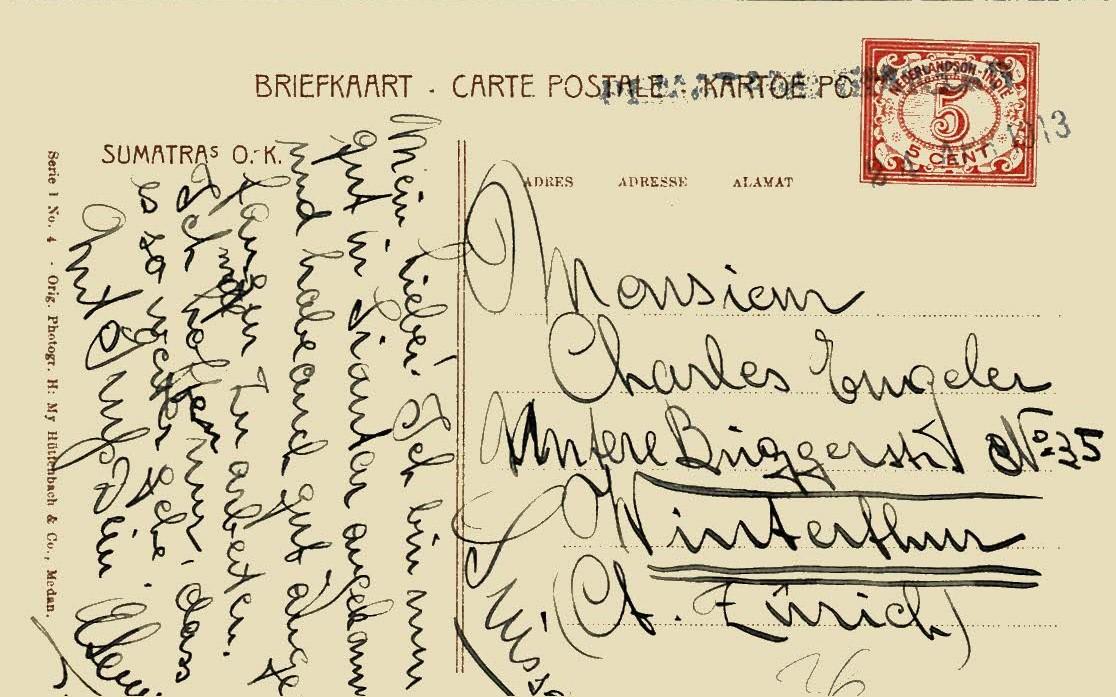 BRIEFKAART · CARTE POSTALE · KARTOE PO
NEDERLANDSCH-INDIË
5
5 CENT
1913
SUMATRAS O.-K.
ADRES ADRESSE ALAMAT
Monsieur
Charles Engeler
Untere Briggerstr. No. 35
Winterthur
(Ct. Zürich)
Suisse
Mein Lieber! Ich bin nun
gut in Siantar angekom
und habe auch gut ange
fangen zu arbeiten.
Ich hoffe nur, dass
es so weiter gehe.
Mit Gruss Dein
Serie I No. 4 · Orig. Photogr. H: My Hüttenbach & Co., Medan.
26